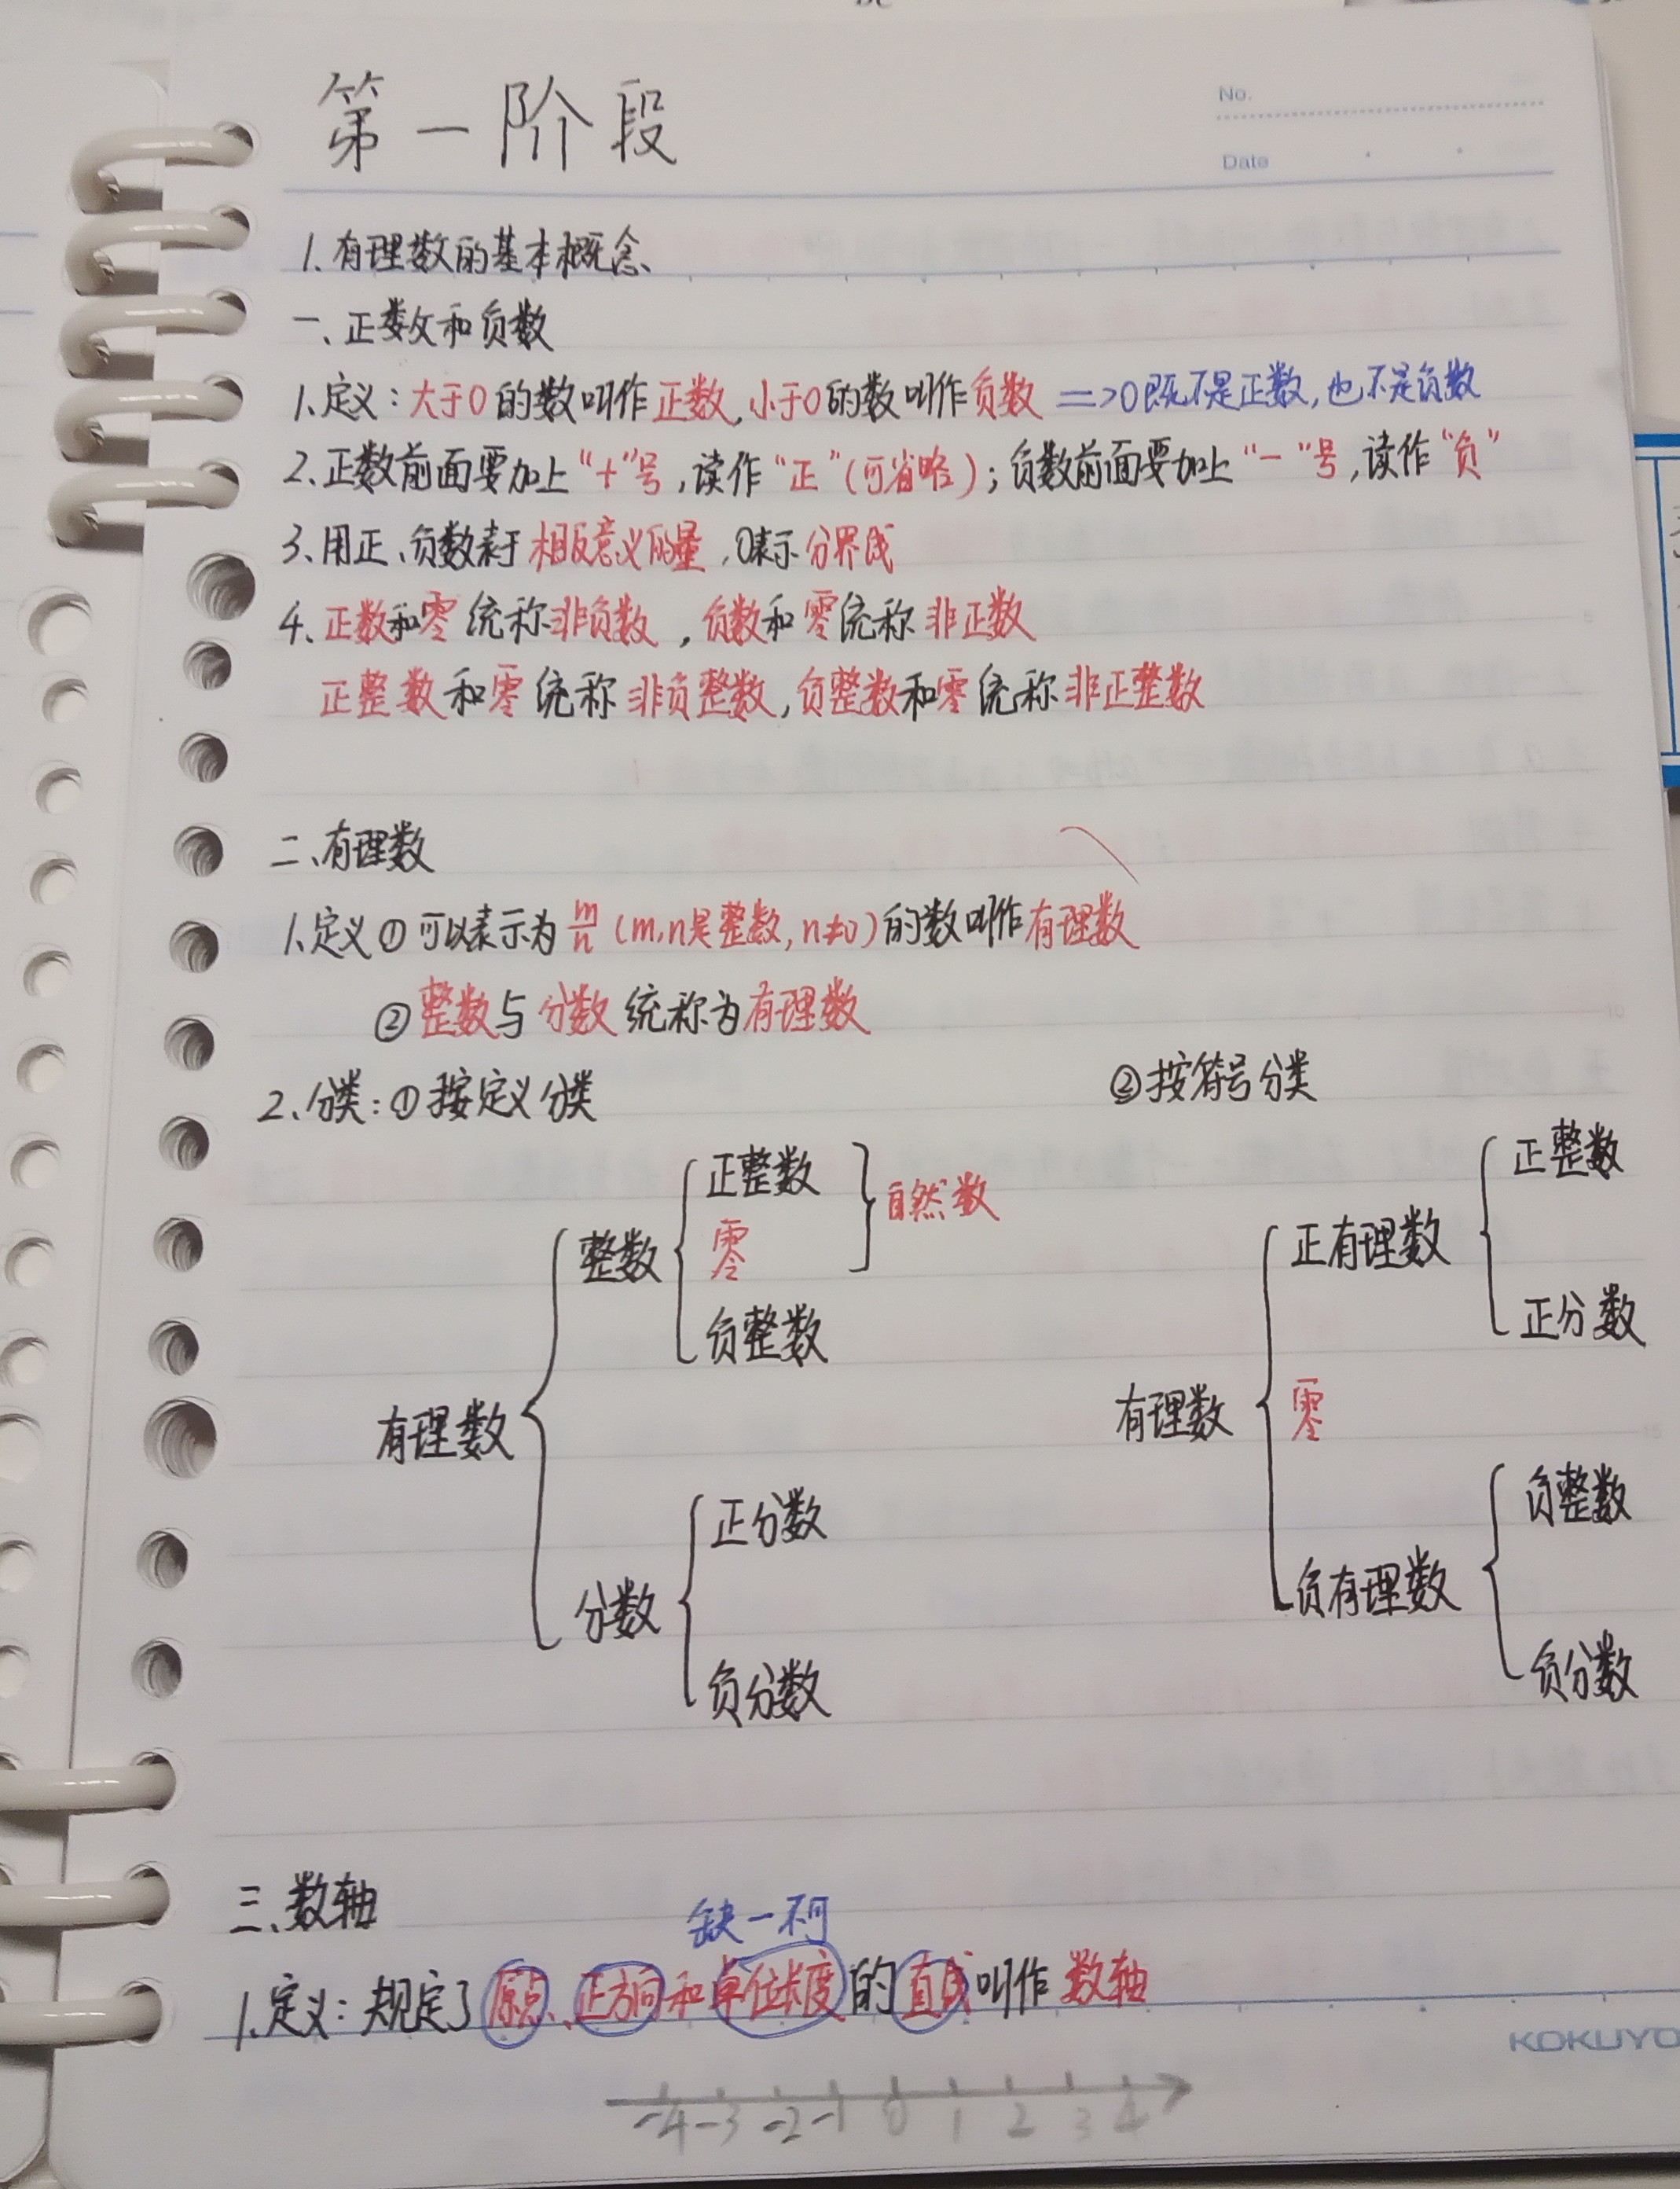 第一阶段
No.
Date
1.有理数的基本概念
一、正数和负数
1、定义：大于0的数叫作正数，小于0的数叫作负数 =>0既不是正数，也不是负数
2、正数前面要加上“+”号，读作“正”(可省略)；负数前面要加上“-”号，读作“负”
3、用正、负数表于相反意义的量，0表示分界线
4、正数和零统称非负数，负数和零统称非正数
正整数和零统称非负整数，负整数和零统称非正整数
二、有理数
1、定义①可以表示为m/n(m,n是整数,n≠0)的数叫作有理数
②整数与分数统称为有理数
2、分类：①按定义分类
②按符号分类
正整数
零
自然数
整数
负整数
有理数
正分数
分数
负分数
正整数
正有理数
正分数
有理数
零
负整数
负有理数
负分数
三、数轴
缺一不可
1.定义：规定了原点、正方向和单位长度的直线叫作数轴
KOKUYO
-4 -3 -2 -1 0 1 2 3 4